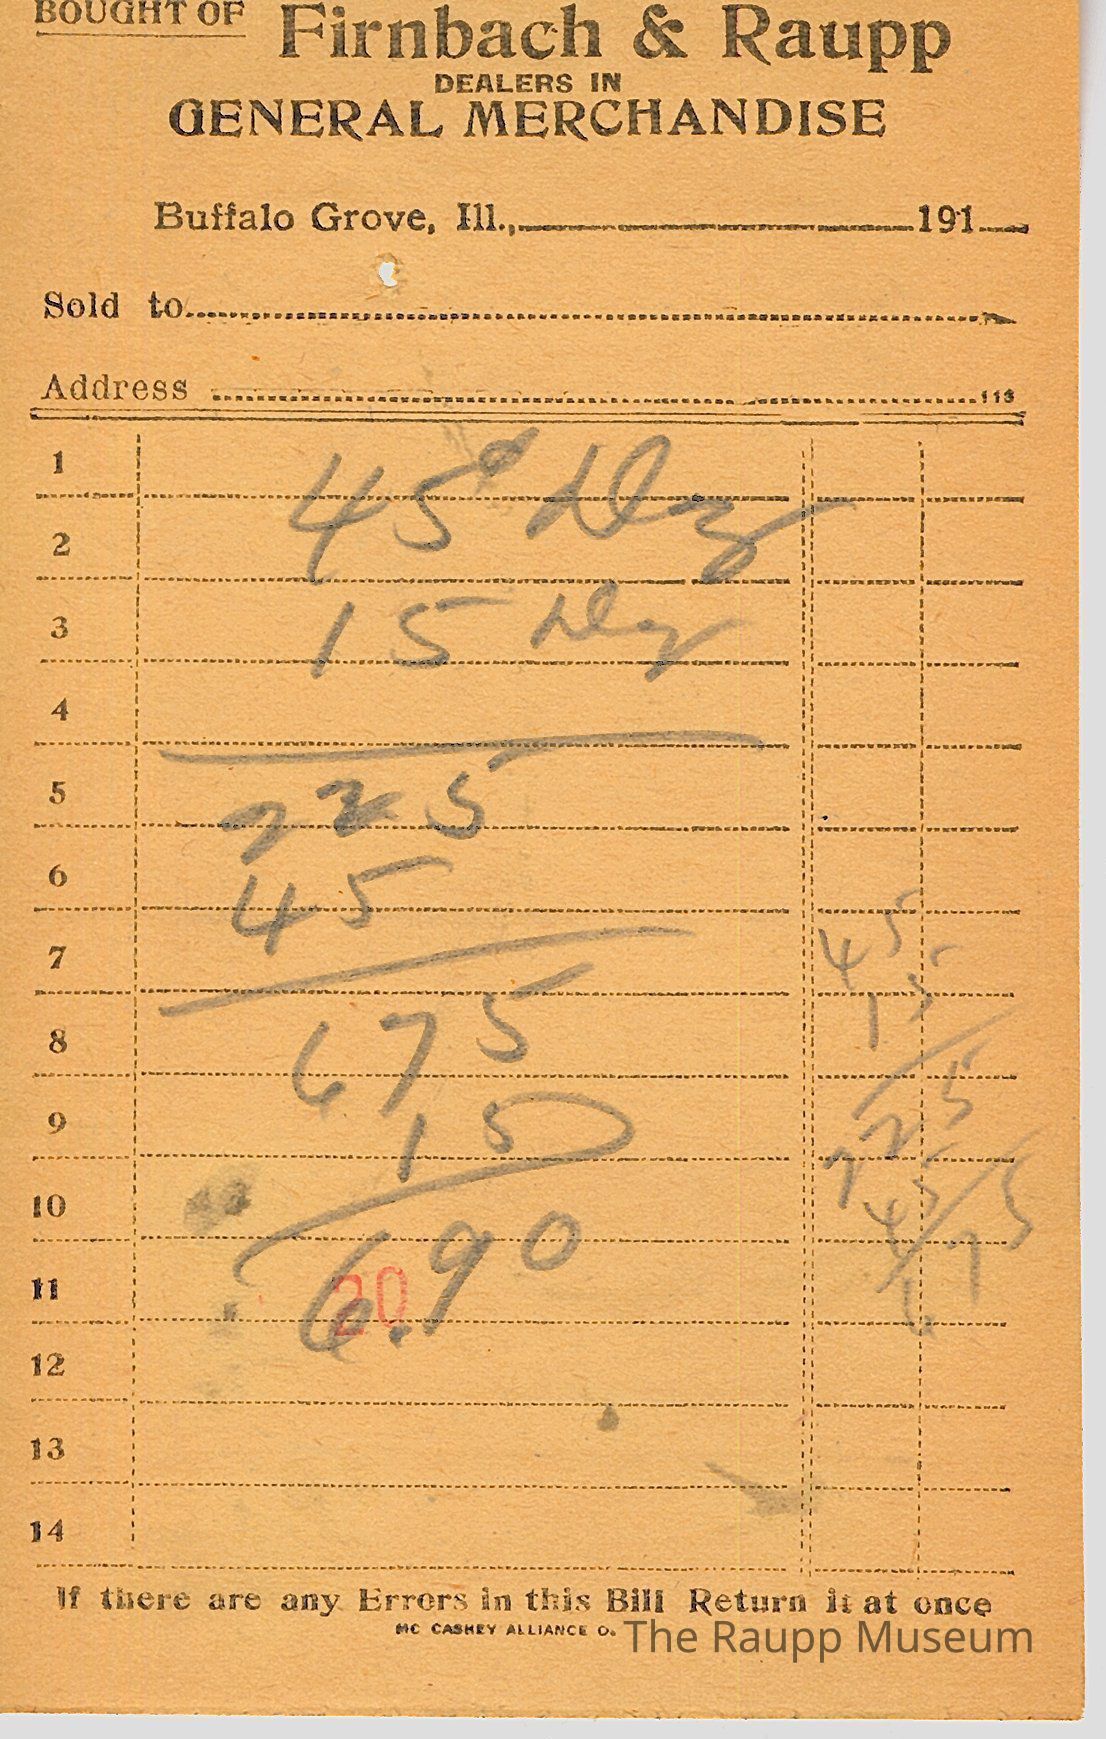 BOUGHT OF Firnbach & Raupp
DEALERS IN
GENERAL MERCHANDISE
Buffalo Grove, Ill., 191
Sold to
Address 113
1
45¢ Dz
2
3 15 Dz
4
5 225
6 45
7 45
15
8 675
225
9 15
45
10
675
11 6.90
20
12
13
14
If there are any Errors in this Bill Return it at once
MC CASKEY ALLIANCE O.
The Raupp Museum